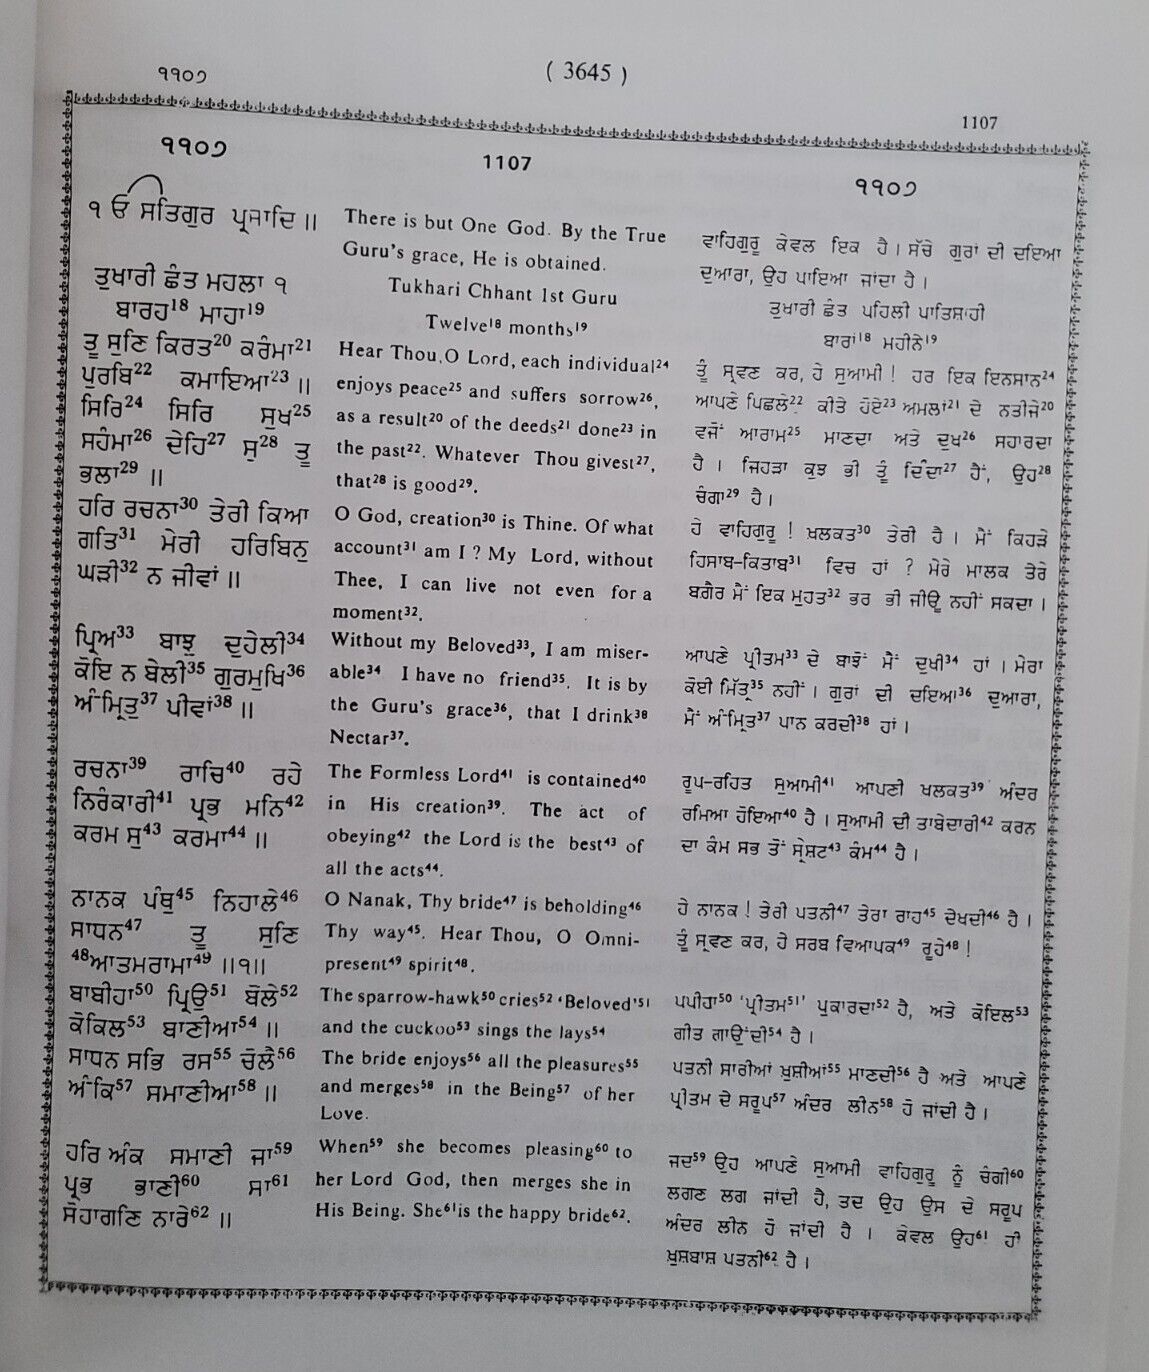 ੧੧੦੭
( 3645 )
1107
੧੧੦੭
1107
੧੧੦੭
੧ ਓ ਸਤਿਗੁਰ ਪ੍ਰਸਾਦਿ ॥
ਤੁਖਾਰੀ ਛੰਤ ਮਹਲਾ ੧
ਬਾਰਹ18 ਮਾਹਾ19
ਤੂ ਸੁਣਿ ਕਿਰਤ20 ਕਰੰਮਾ21
ਪੁਰਬਿ22 ਕਮਾਇਆ23 ॥
ਸਿਰਿ24 ਸਿਰਿ ਸੁਖ25
ਸਹੰਮਾ26 ਦੇਹਿ27 ਸੁ28 ਤੂ
ਭਲਾ29 ॥
ਹਰਿ ਰਚਨਾ30 ਤੇਰੀ ਕਿਆ
ਗਤਿ31 ਮੇਰੀ ਹਰਿਬਿਨੁ
ਘੜੀ32 ਨ ਜੀਵਾਂ ॥
ਪ੍ਰਿਅ33 ਬਾਝੁ ਦੁਹੇਲੀ34
ਕੋਇ ਨ ਬੇਲੀ35 ਗੁਰਮੁਖਿ36
ਅੰਮ੍ਰਿਤੁ37 ਪੀਵਾਂ38 ॥
ਰਚਨਾ39 ਰਾਚਿ40 ਰਹੇ
ਨਿਰੰਕਾਰੀ41 ਪ੍ਰਭ ਮਨਿ42
ਕਰਮ ਸੁ43 ਕਰਮਾ44 ॥
ਨਾਨਕ ਪੰਥੁ45 ਨਿਹਾਲੇ46
ਸਾਧਨ47 ਤੂ ਸੁਣਿ
48ਆਤਮਰਾਮਾ49 ॥੧॥
ਬਾਬੀਹਾ50 ਪ੍ਰਿਉ51 ਬੋਲੇ52
ਕੋਕਿਲ53 ਬਾਣੀਆ54 ॥
ਸਾਧਨ ਸਭਿ ਰਸ55 ਚੋਲੈ56
ਅੰਕਿ57 ਸਮਾਣੀਆ58 ॥
ਹਰਿ ਅੰਕ ਸਮਾਣੀ ਜਾ59
ਪ੍ਰਭ ਭਾਣੀ60 ਸਾ61
ਸੋਹਾਗਣਿ ਨਾਰੇ62 ॥
There is but One God. By the True
Guru's grace, He is obtained.
Tukhari Chhant 1st Guru
Twelve18 months19
Hear Thou,O Lord, each individual24
enjoys peace25 and suffers sorrow26,
as a result20 of the deeds21 done23 in
the past22. Whatever Thou givest27,
that28 is good29.
O God, creation30 is Thine. Of what
account31 am I ? My Lord, without
Thee, I can live not even for a
moment32.
Without my Beloved33, I am miser-
able34 I have no friend35. It is by
the Guru's grace36, that I drink38
Nectar37.
The Formless Lord41 is contained40
in His creation39. The act of
obeying42 the Lord is the best43 of
all the acts44.
O Nanak, Thy bride47 is beholding46
Thy way45. Hear Thou, O Omni-
present49 spirit48.
The sparrow-hawk50 cries52 'Beloved'51
and the cuckoo53 sings the lays54
The bride enjoys56 all the pleasures55
and merges58 in the Being57 of her
Love.
When59 she becomes pleasing60 to
her Lord God, then merges she in
His Being. She61is the happy bride62.
ਵਾਹਿਗੁਰੂ ਕੇਵਲ ਇਕ ਹੈ । ਸੱਚੇ ਗੁਰਾਂ ਦੀ ਦਇਆ
ਦੁਆਰਾ, ਉਹ ਪਾਇਆ ਜਾਂਦਾ ਹੈ ।
ਤੁਖਾਰੀ ਛੰਤ ਪਹਿਲੀ ਪਾਤਿਸ਼ਾਹੀ
ਬਾਰਾਂ18 ਮਹੀਨੇ19
ਤੂੰ ਸ੍ਰਵਣ ਕਰ, ਹੇ ਸੁਆਮੀ ! ਹਰ ਇਕ ਇਨਸਾਨ24
ਆਪਣੇ ਪਿਛਲੇ22 ਕੀਤੇ ਹੋਏ23 ਅਮਲਾਂ21 ਦੇ ਨਤੀਜੇ20
ਵਜੋਂ ਆਰਾਮ25 ਮਾਣਦਾ ਅਤੇ ਦੁਖ26 ਸਹਾਰਦਾ
ਹੈ । ਜਿਹੜਾ ਕੁਝ ਭੀ ਤੂੰ ਦਿੰਦਾ27 ਹੈਂ, ਉਹ28
ਚੰਗਾ29 ਹੈ ।
ਹੇ ਵਾਹਿਗੁਰੂ ! ਖ਼ਲਕਤ30 ਤੇਰੀ ਹੈ । ਮੈਂ ਕਿਹੜੇ
ਹਿਸਾਬ-ਕਿਤਾਬ31 ਵਿਚ ਹਾਂ ? ਮੇਰੇ ਮਾਲਕ ਤੇਰੇ
ਬਗੈਰ ਮੈਂ ਇਕ ਮੁਹਤ32 ਭਰ ਭੀ ਜੀਊ ਨਹੀਂ ਸਕਦਾ ।
ਆਪਣੇ ਪ੍ਰੀਤਮ33 ਦੇ ਬਾਝੋਂ ਮੈਂ ਦੁਖੀ34 ਹਾਂ । ਮੇਰਾ
ਕੋਈ ਮਿੱਤ੍ਰ35 ਨਹੀਂ । ਗੁਰਾਂ ਦੀ ਦਇਆ36 ਦੁਆਰਾ,
ਮੈਂ ਅੰਮ੍ਰਿਤ37 ਪਾਨ ਕਰਦੀ38 ਹਾਂ ।
ਰੂਪ-ਰਹਿਤ ਸੁਆਮੀ41 ਆਪਣੀ ਖਲਕਤ39 ਅੰਦਰ
ਰਮਿਆ ਹੋਇਆ40 ਹੈ । ਸੁਆਮੀ ਦੀ ਤਾਬੇਦਾਰੀ42 ਕਰਨ
ਦਾ ਕੰਮ ਸਭ ਤੋਂ ਸ੍ਰੇਸ਼ਟ43 ਕੰਮ44 ਹੈ ।
ਹੇ ਨਾਨਕ ! ਤੇਰੀ ਪਤਨੀ47 ਤੇਰਾ ਰਾਹ45 ਦੇਖਦੀ46 ਹੈ ।
ਤੂੰ ਸ੍ਰਵਣ ਕਰ, ਹੇ ਸਰਬ ਵਿਆਪਕ49 ਰੂਹੇ48 !
ਪਪੀਹਾ50 'ਪ੍ਰੀਤਮ51' ਪੁਕਾਰਦਾ52 ਹੈ, ਅਤੇ ਕੋਇਲ53
ਗੀਤ ਗਾਉਂਦੀ54 ਹੈ ।
ਪਤਨੀ ਸਾਰੀਆਂ ਖ਼ੁਸ਼ੀਆਂ55 ਮਾਣਦੀ56 ਹੈ ਅਤੇ ਆਪਣੇ
ਪ੍ਰੀਤਮ ਦੇ ਸਰੂਪ57 ਅੰਦਰ ਲੀਨ58 ਹੋ ਜਾਂਦੀ ਹੈ ।
ਜਦ59 ਉਹ ਆਪਣੇ ਸੁਆਮੀ ਵਾਹਿਗੁਰੂ ਨੂੰ ਚੰਗੀ60
ਲਗਣ ਲਗ ਜਾਂਦੀ ਹੈ, ਤਦ ਉਹ ਉਸ ਦੇ ਸਰੂਪ
ਅੰਦਰ ਲੀਨ ਹੋ ਜਾਂਦੀ ਹੈ । ਕੇਵਲ ਉਹ61 ਹੀ
ਖ਼ੁਸ਼ਬਾਸ਼ ਪਤਨੀ62 ਹੈ ।